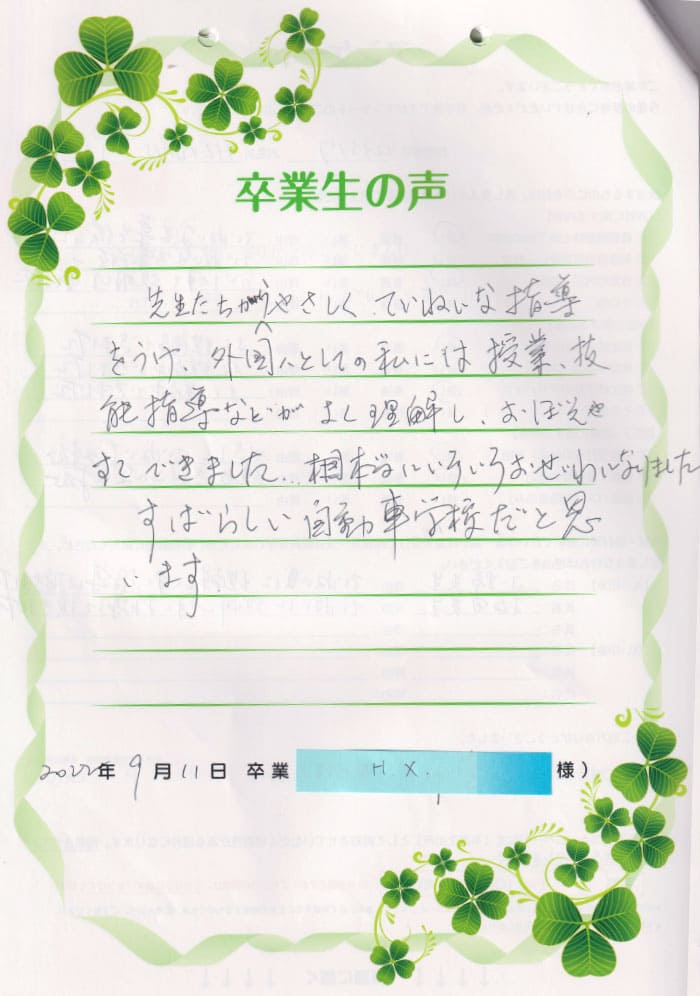 卒業生の声
先生たちからやさしく、ていねいな指導
をうけ、外国人としての私には授業、技
能指導などがよく理解し、おぼえや
すくできました。相本さんにいろいろおせわになりました
すばらしい自動車学校だと思
います。
2022年 9月11日 卒業 H.X. 様）